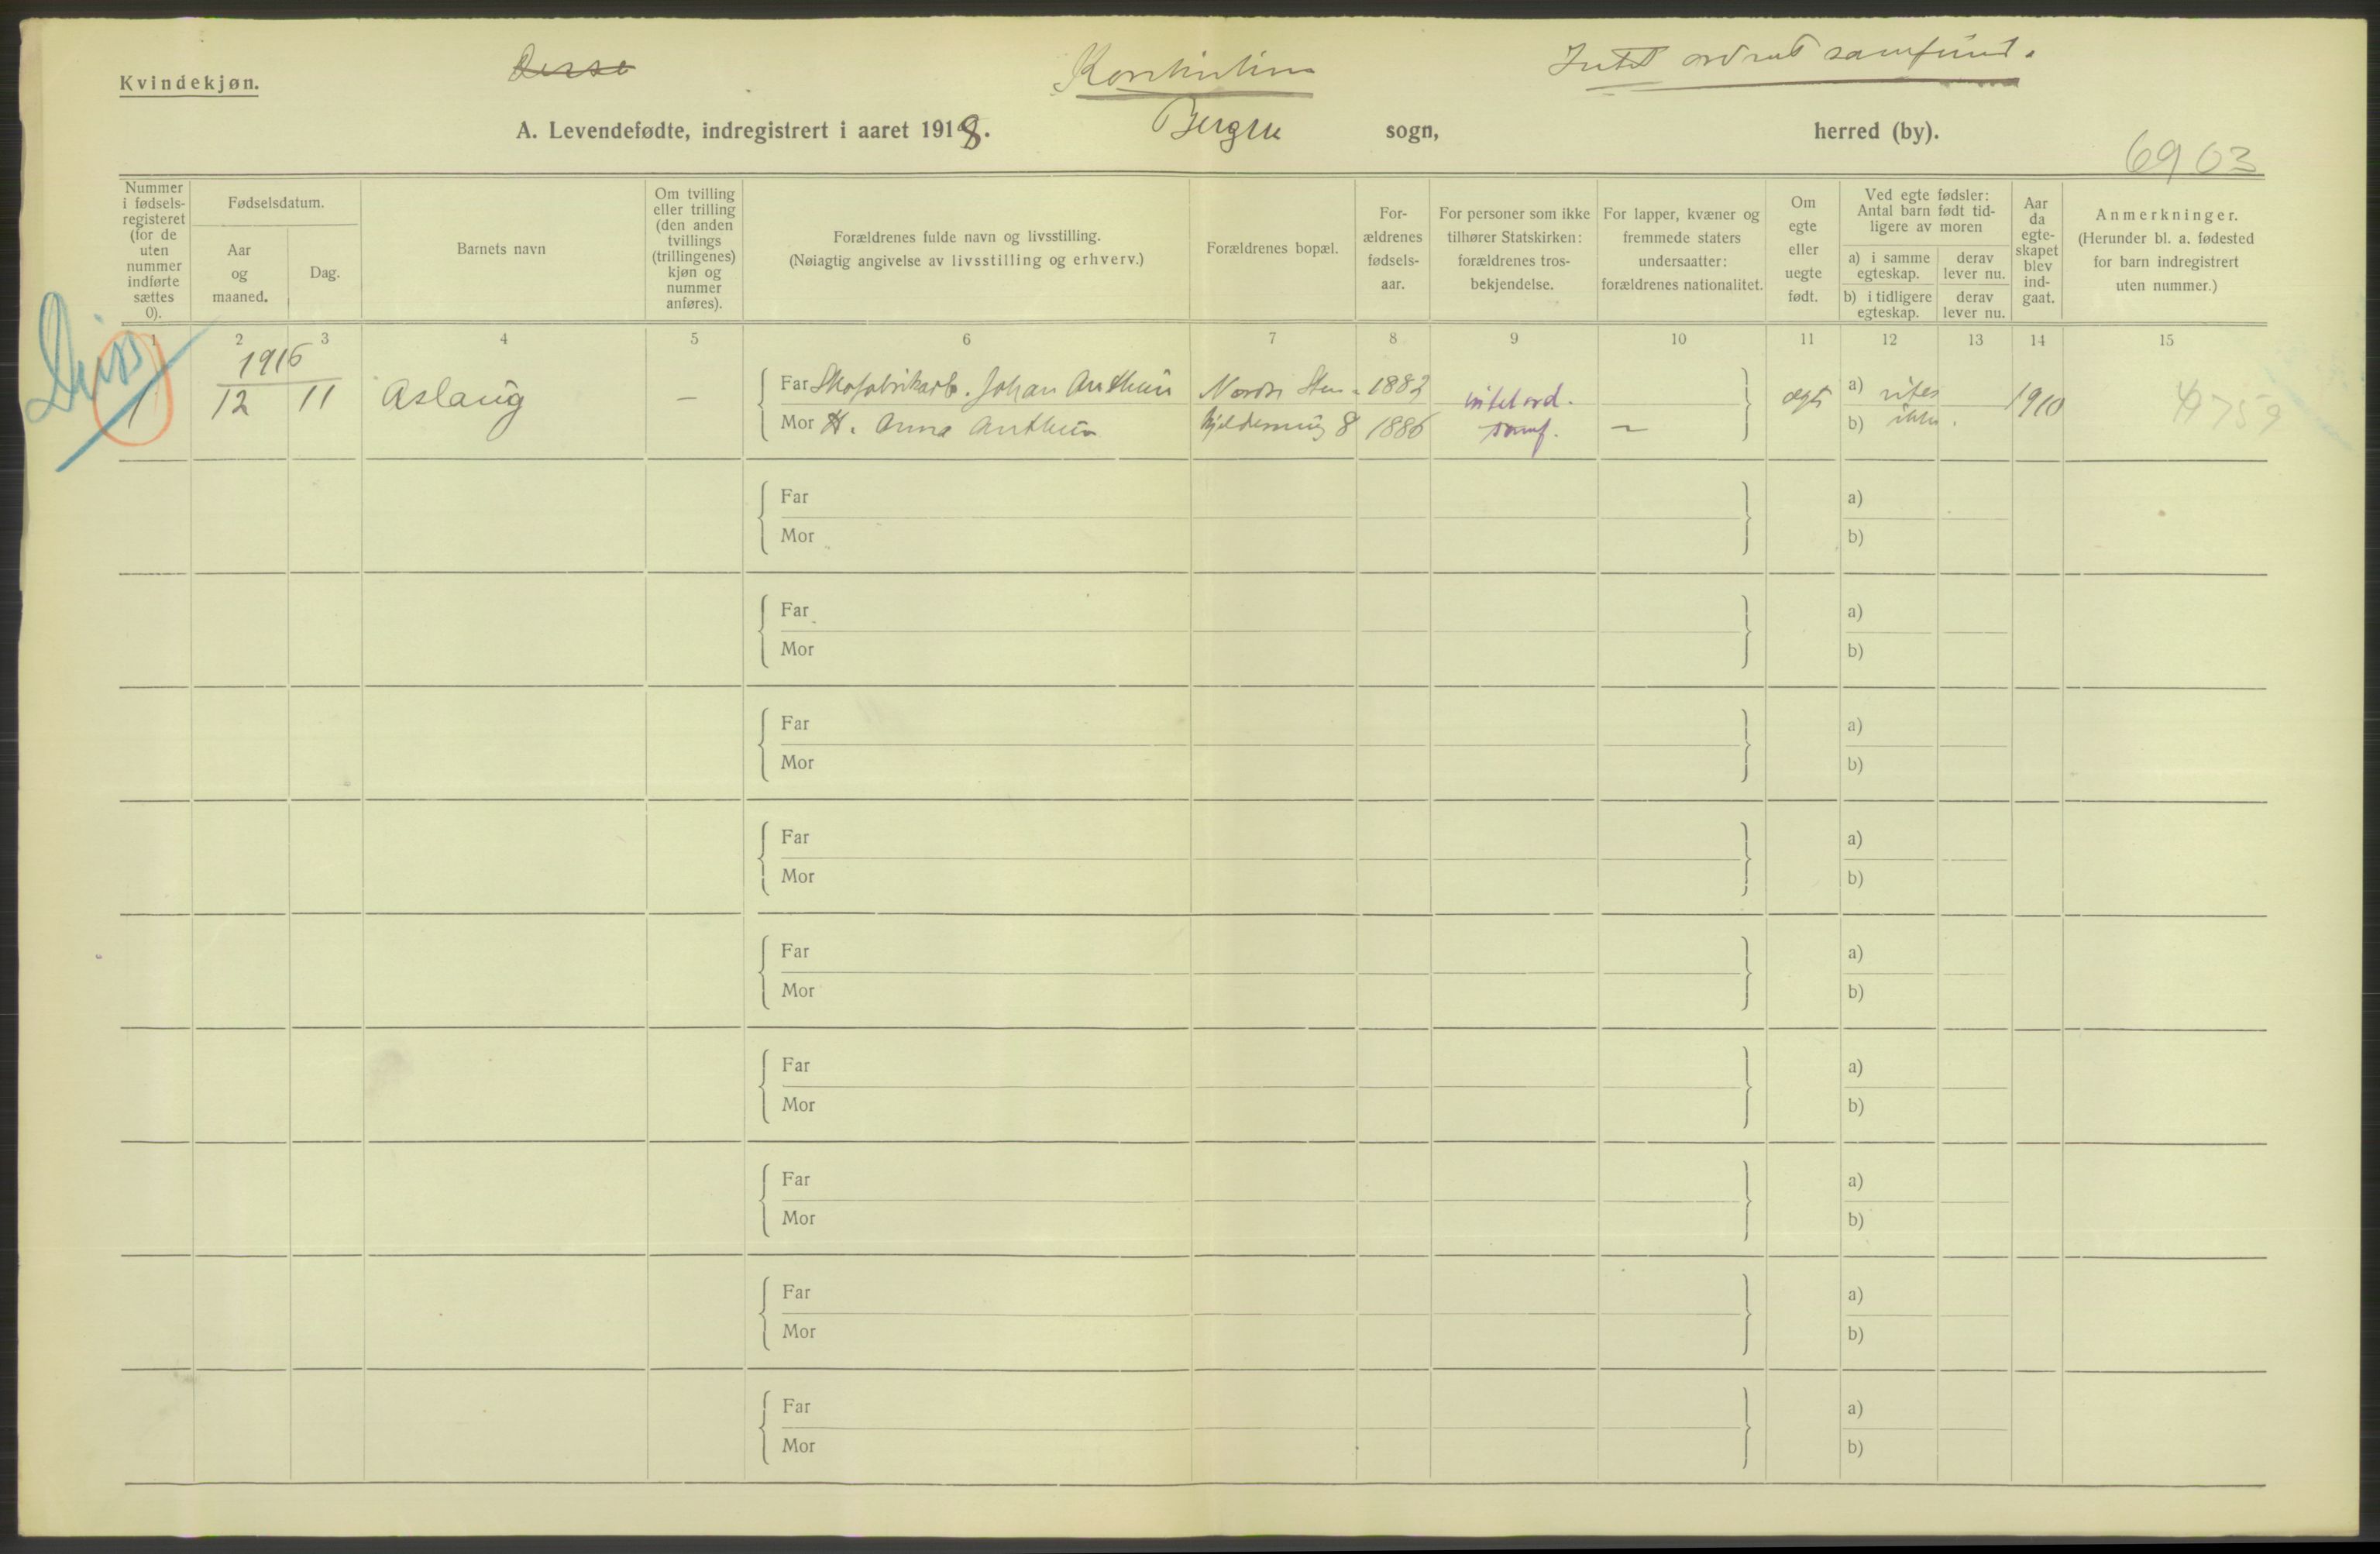 Kvindekjøn.
Intet ordnet samfund.
A. Levendefødte, indregistrert i aaret 1918. Bergen sogn, herred (by).
6903
Nummer i fødsels-registeret (for de uten nummer indførte sættes 0).
Fødselsdatum.
Aar og maaned.
Dag.
Barnets navn
Om tvilling eller trilling (den anden tvillings (trillingenes) kjøn og nummer anføres).
Forældrenes fulde navn og livsstilling.
(Nøiagtig angivelse av livsstilling og erhverv.)
Forældrenes bopæl.
For-ældrenes fødsels-aar.
For personer som ikke tilhører Statskirken: forældrenes tros-bekjendelse.
For lapper, kvæner og fremmede staters undersaatter: forældrenes nationalitet.
Om egte eller uegte født.
Ved egte fødsler: Antal barn født tid-ligere av moren
a) i samme egteskap.
derav lever nu.
b) i tidligere egteskap.
derav lever nu.
Aar da egte-skapet blev ind-gaat.
Anmerkninger.
(Herunder bl. a. fødested for barn indregistrert uten nummer.)
1 2 3 4 5 6 7 8 9 10 11 12 13 14 15
1916
1 12 11 Aslaug — Far Skofabrikarb. Johan Anthun Nordre 1882 intet ord. egte a) vites 1910
Mor H. Anna Anthun 8 1886 samf. — b) ikke.
Far a)
Mor b)
Far a)
Mor b)
Far a)
Mor b)
Far a)
Mor b)
Far a)
Mor b)
Far a)
Mor b)
Far a)
Mor b)
Far a)
Mor b)
Far a)
Mor b)